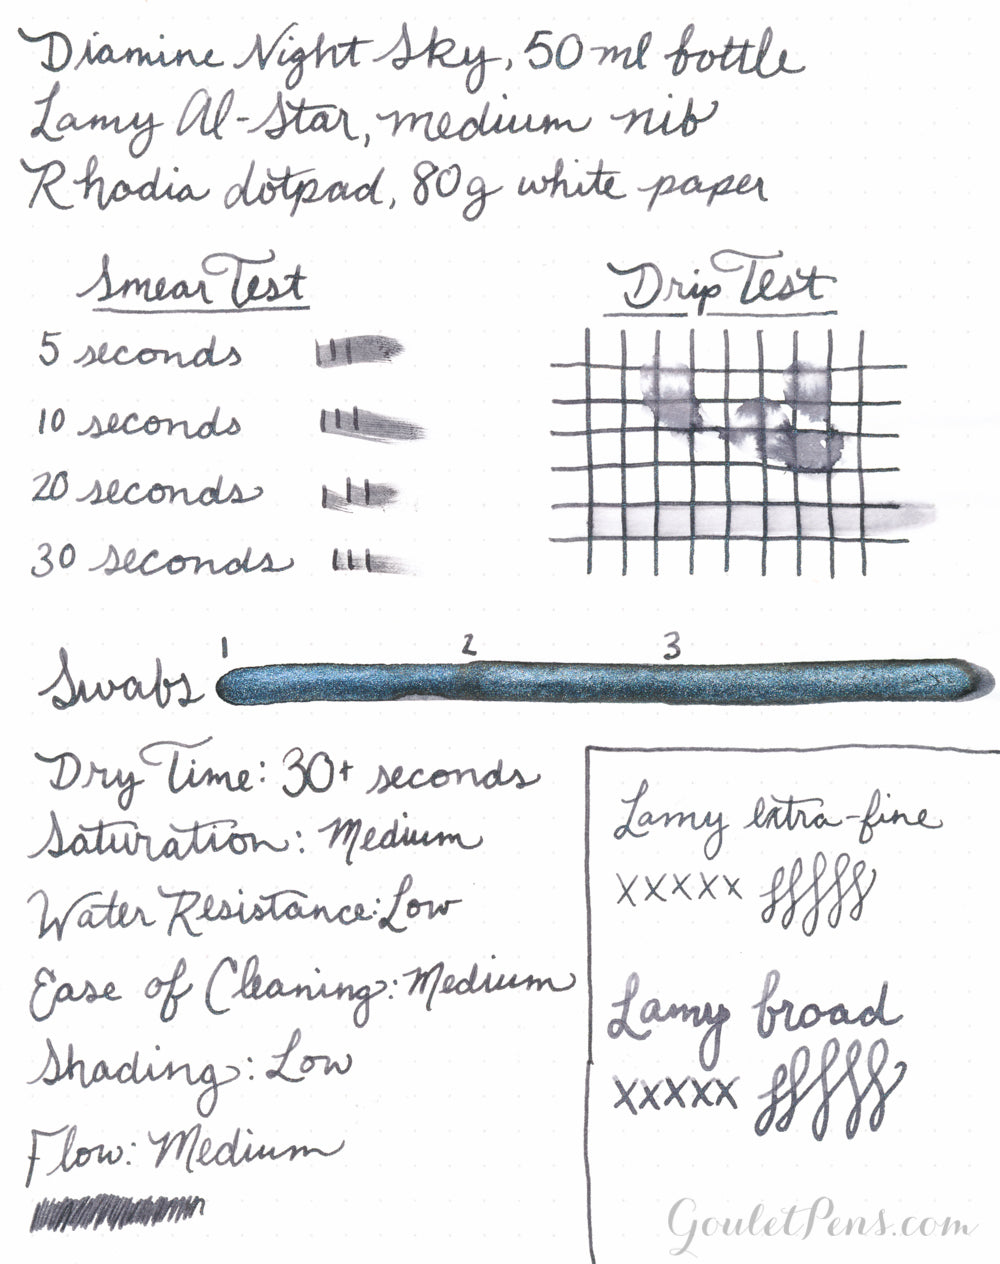 Diamine Night Sky, 50 ml bottle
Lamy Al-Star, medium nib
Rhodia dotpad, 80g white paper
Smear Test
5 seconds
10 seconds
20 seconds
30 seconds
Drip Test
Swabs
1 2 3
Dry Time: 30+ seconds
Saturation: Medium
Water Resistance: Low
Ease of Cleaning: Medium
Shading: Low
Flow: Medium
Lamy extra-fine
xxxxx
Lamy broad
xxxxx
GouletPens.com